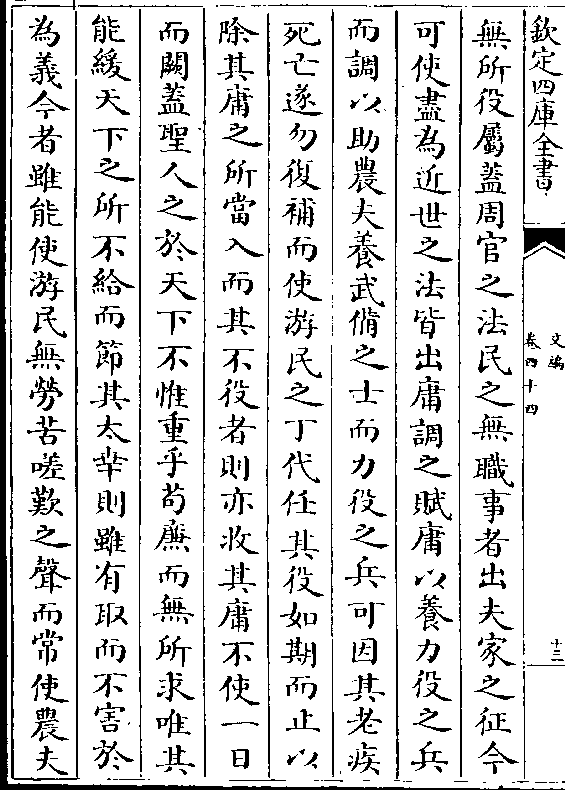 欽定四庫全書
文編
卷四十四
十三
無所役屬蓋周官之法民之無職事者出夫家之征今
可使盡為近世之法皆出庸調之賦庸以養力役之兵
而調以助農夫養武備之士而力役之兵可因其老疾
死亡遂勿復補而使游民之丁代任其役如期而止以
除其庸之所當入而其不役者則亦收其庸不使一日
而闕蓋聖人之於天下不惟重乎苟廉而無所求唯其
能緩天下之所不給而節其太幸則雖有取而不害於
為義今者雖能使游民無勞苦嗟歎之聲而常使農夫